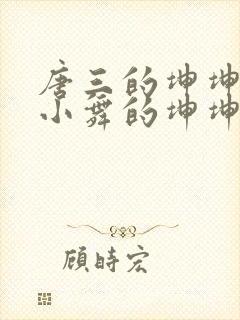 唐三的坤坤
小舞的坤坤
顾時宏